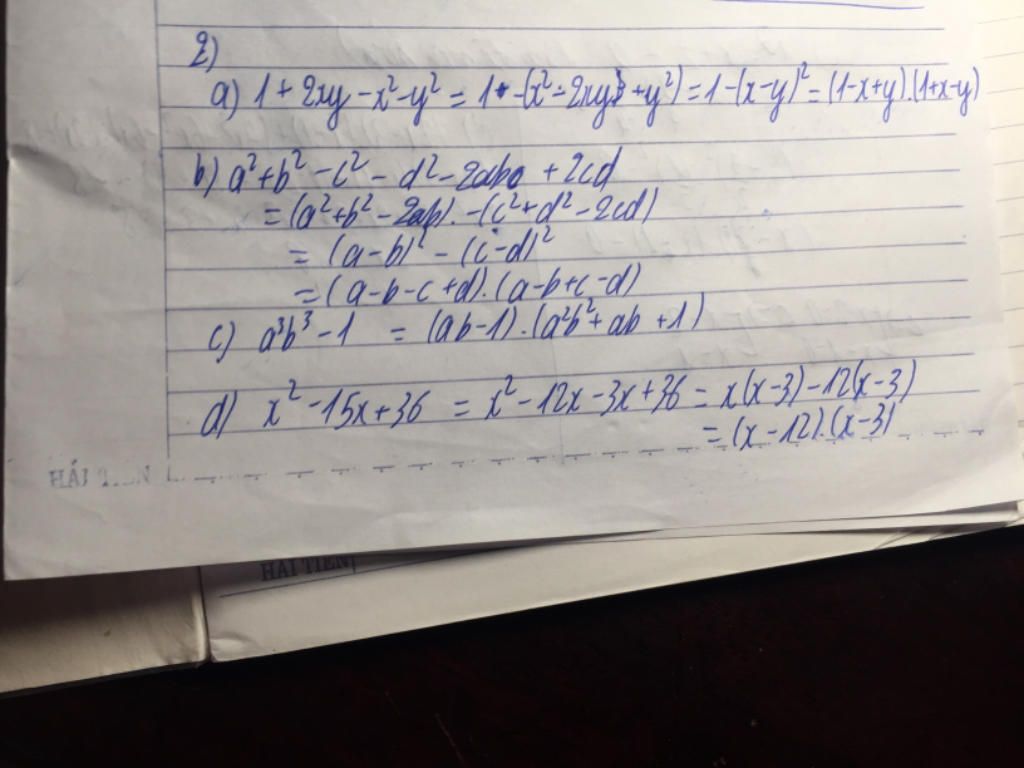 2)
a) 1 + 2xy - x² - y² = 1 - (x² - 2xy + y²) = 1 - (x-y)² = (1-x+y).(1+x-y)
b) a² + b² - c² - d² - 2ab + 2cd
= (a² + b² - 2ab) . - (c² + d² - 2cd)
= (a-b)² - (c-d)²
= (a-b-c+d).(a-b+c-d)
c) a³b³ - 1 = (ab-1).(a²b² + ab + 1)
d) x² - 15x + 36 = x² - 12x - 3x + 36 = x(x-3) - 12(x-3)
= (x-12).(x-3)
HẢI TIẾN
HẢI TIẾN